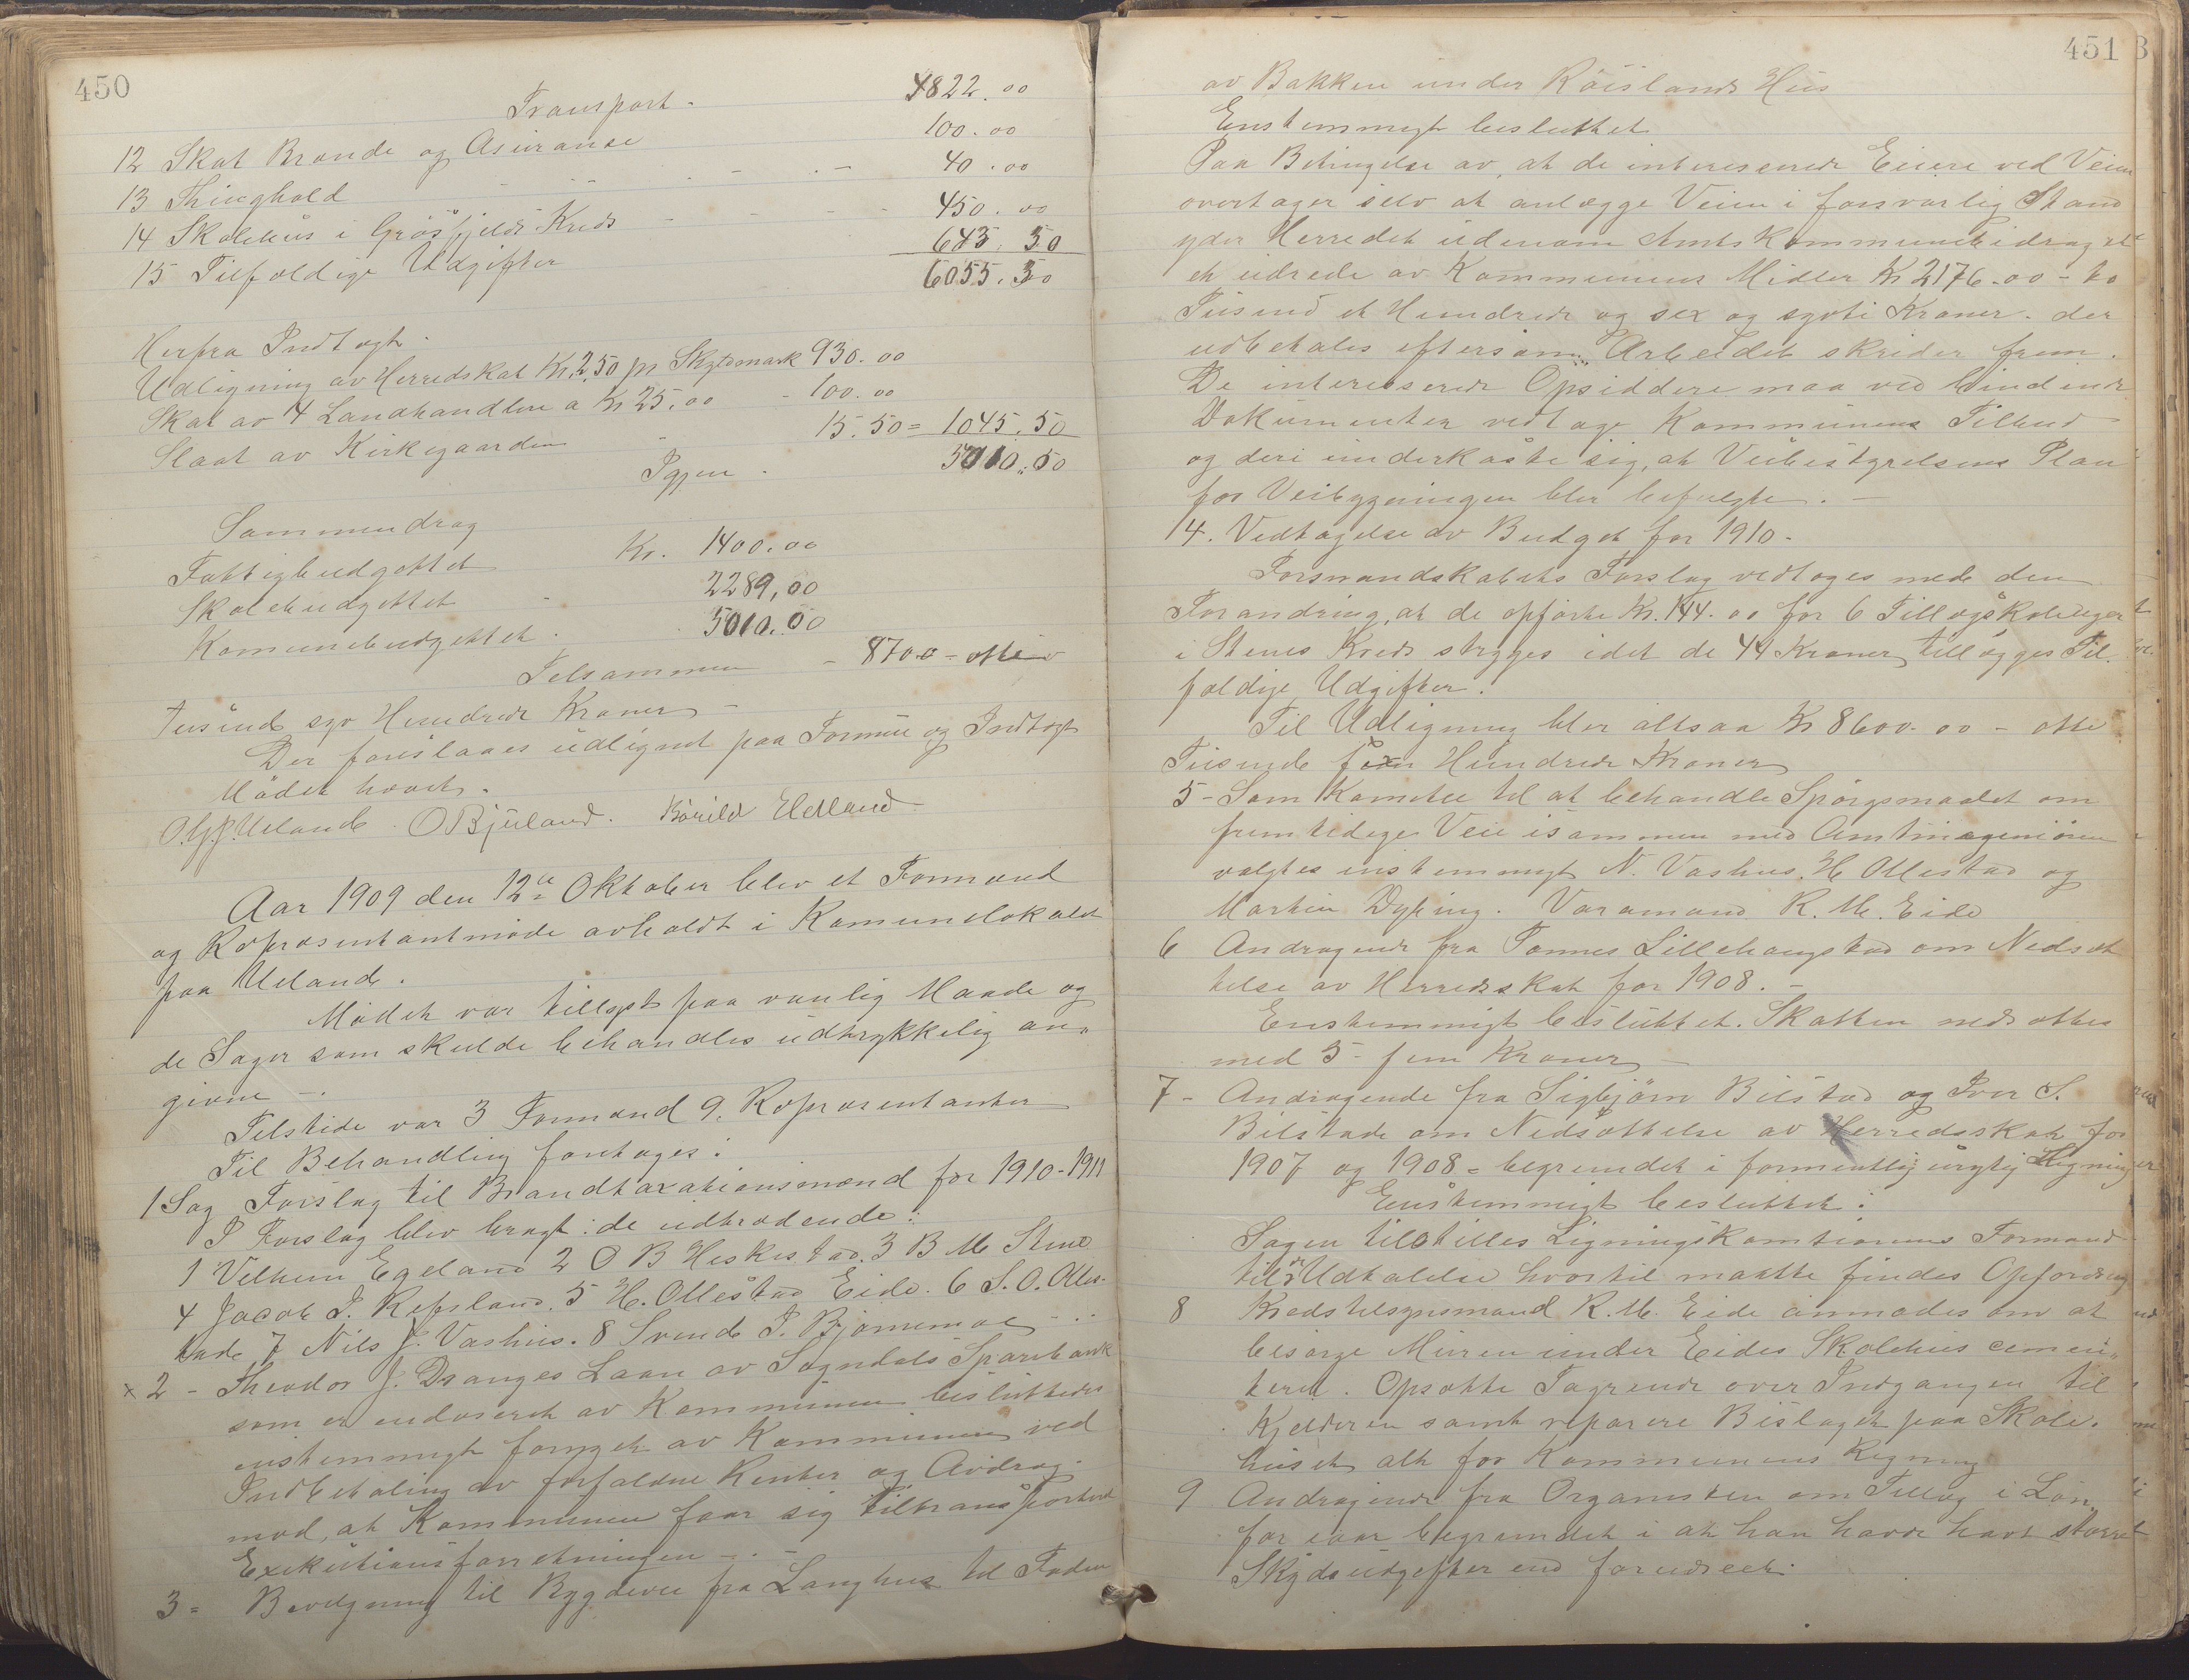 450
Transport. 4822.00
12 Skat Brande og Asuranse 100.00
13 Thinghold 40.00
14 Skolehus i Gröstfjeld Kreds 450.00
15 Tilfoldige Udgifter 643.50
6055.50
Herfra Indtægt.
Udligning av Herredskat Kr. 2,50 pr Skyldmark 930.00
Skat av 4 Landhandlere a Kr 25.00 - 100.00
Slaat av Kirkegaarden 15.50 = 1045.50
Igjen 5010.00
Sammendrag
Fattigbudgettet Kr. 1400.00
Skolebudgettet - 2289,00
Komunebudgettet. 5010.00
Tilsammen - 8700 - otte
tusind syv Hundrede Kroner -
Der foreslaaes udlignet paa Formue og Indtægt
Mödet hævet.
O.G.P. Ueland. O Bjuland. Börild Eldland
Aar 1909 den 12te Oktober blev et Formænd
og Repræsentantmöde avholdt i Komunelokalet
paa Ueland.
Mödet var tillyst paa vanlig Maade og
de Sager som skulde behandles udtrykkelig an-
givne -.
Tilstede var 3 Formænd 9. Repræsentanter
Til Behandling foretoges:
1 Sag Forslag til Brandtaxationsmænd for 1910-1911
I Forslag blev bragt: de udtrædende:
1 Vilhem Egeland 2 O B Heskestad. 3 B M Stene
4 Jacob I. Refsland. 5 H. Ollestad Eide. 6 S. O. Olles-
tad. 7 Nils J. Vashus. 8 Svend I. Bjornemoe -..
x 2 - Theodor J. Dranges Laan av Sogndals Sparebank
som er endoseret av Kommunen besluttedes
enstemmigt fornyet av Kommunen ved
Indbetaling av forfaldne Renter og Avdrag.
mod, at Kommunen faar sig tiltransporteret
Exekutionsforretningen -.-
3 = Bevilgning til Bygdevei fra Langhus til Foden
451
av Bakken under Röislands Hus
Enstemmigt besluttet
Paa Betingelse av, at de interesserede Eiere ved Veien
overtager selv at anlægge Veien i forsvarlig Stand
yder Herredet udenom Amtskommunebidraget
et udrede av Kommunens Midler Kr 2176.00 - to
Tusind et Hundrede og sex og sytti Kroner. der
udbetales eftersom Arbeidet skrider frem.
De interesserede Opsiddere maa ved bindende
Dokumenter vedtage Kommunens Tilbud
og deri underkaste sig, at Veibestyrelsens Plan
for Veibygningen blir befulgte. -
4. Vedtagelse av Budget for 1910.
Formandskabets Forslag vedtoges med den
Forandring, at de opførte Kr. 144.00 for 6 Tillægskoleuger
i Stenes Kreds stryges idet de 44 Kroner tillægges Til-
fældige Udgifter.
Til Udligning blir altsaa Kr 8600.00 - otte
Tusinde sex Hundrede Kroner
5 - Som Komitee til at behandle Spörgsmaalet om
fremtidige Veie isammen med Amtsingeniören
valgtes enstemmigt N. Vashus. H Ollestad og
Martin Dyping. Varamand R. M. Eide
6 Andragende fra Tonnes Lillehaugstad om Nedsæt
telse av Herredsskat for 1908. -
Enstemmigt besluttet. Skatten nedsættes
med 5 - fem Kroner -
7 - Andragende fra Sigbjörn Bilstad og Iver S.
Bilstad om Nedsættelse av Herredsskat for
1907 og 1908 = begrundet i formentlig urigtig Ligning
Enstemmigt besluttet:
Sagen tilstilles Ligningskomtionens Formand
til Udtalelse hvortil maatte findes Opfordring
8 Kredstilsynsmand R. M. Eide anmodes om at
besörge Muren under Eides Skolehus cemen-
teret. Opsætte Tagrende over Indgangen til
Kjelderen samt reparere Bislaget paa Skole-
huset alt for Kommunens Regning
9 Andragende fra Organisten om Tillæg i Lön
for iaar begrundet i at han havde havt större
Skydsudgifter end forudseet.